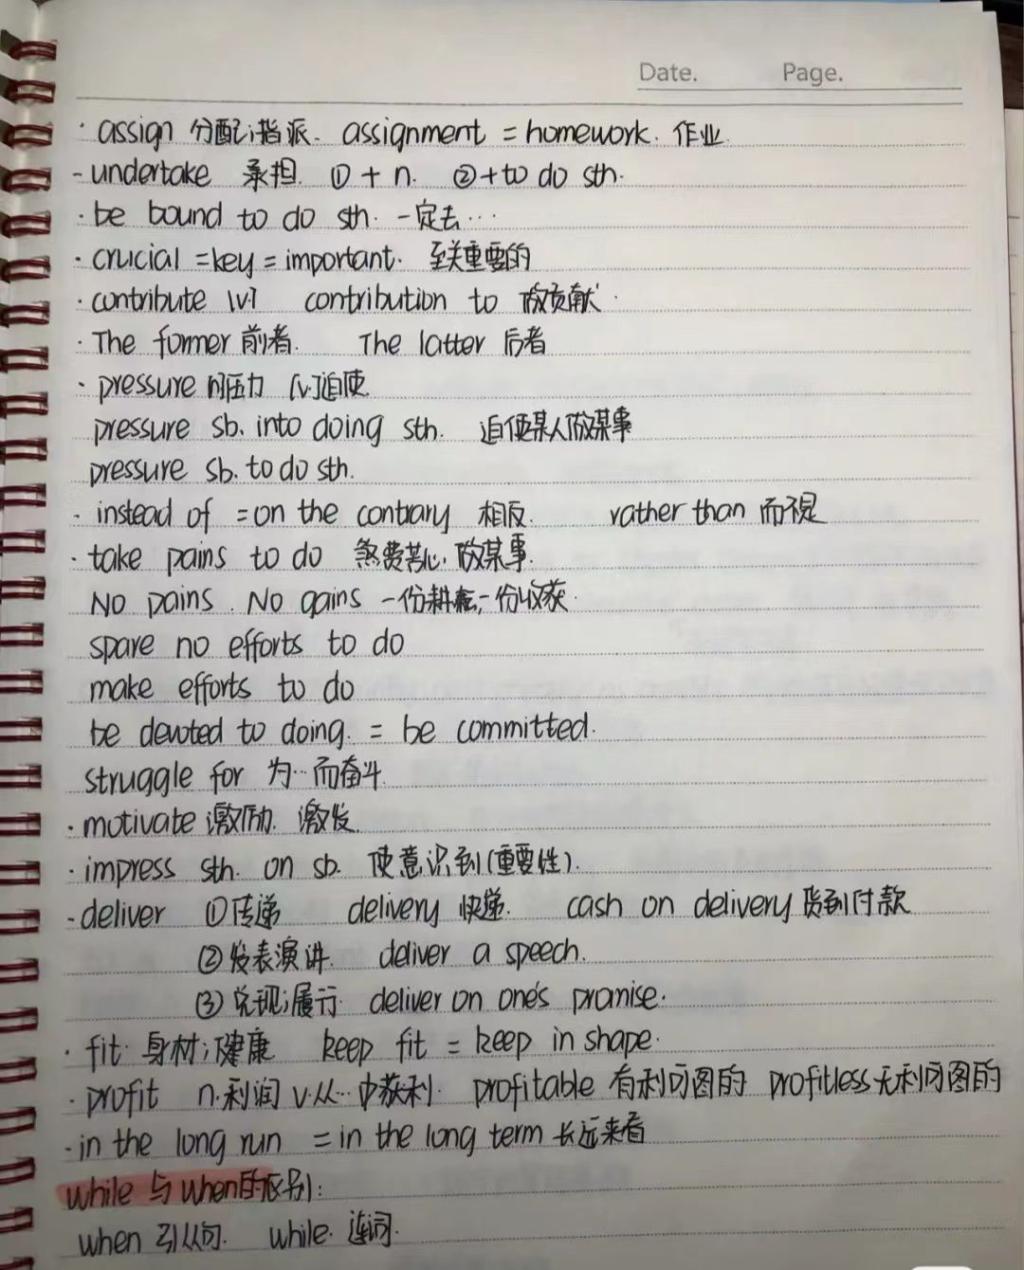 Date. Page.
· assign 分配;指派. assignment = homework. 作业
- undertake 承担. ① + n. ② + to do sth.
· be bound to do sth. 一定去…
· crucial = key = important. 至关重要的
· contribute [v.] contribution to 做贡献.
· The former 前者. The latter 后者
· pressure [n]压力 [v.]迫使.
pressure sb. into doing sth. 迫使某人做某事
pressure sb. to do sth.
· instead of = on the contrary 相反. rather than 而不是
· take pains to do 煞费苦心.做某事.
No pains. No gains 一份耕耘,一份收获.
spare no efforts to do
make efforts to do
be devoted to doing. = be committed.
struggle for 为…而奋斗.
· motivate 激励. 激发.
· impress sth. on sb. 使意识到(重要性).
- deliver ①传递 delivery 快递. cash on delivery 货到付款
②发表演讲. deliver a speech.
③兑现;履行. deliver on one's promise.
· fit. 身材;健康 keep fit = keep in shape.
· profit n.利润 v.从…中获利. profitable 有利可图的 profitless 无利可图的
· in the long run = in the long term 长远来看
while 与 when的区别:
when 引从句. while. 连词.